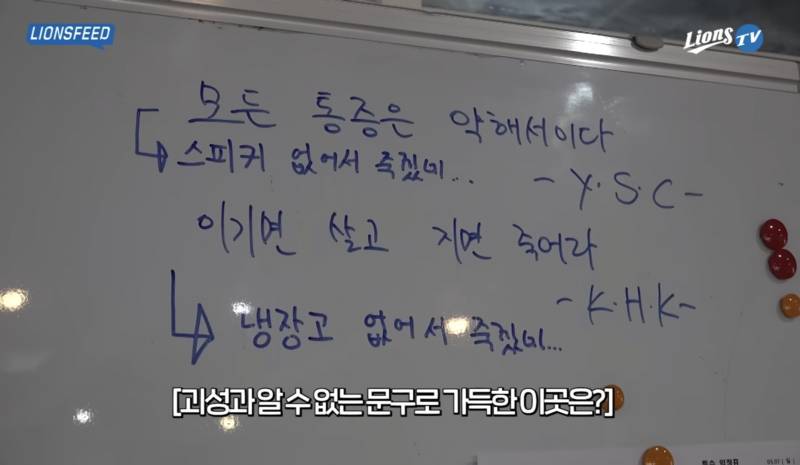 LIONSFEED
Lions TV
모든 통증은 약해서이다
스피커 없어서 죽겠네...
- Y.S.C -
이기면 살고 지면 죽어라
- K.H.K -
냉장고 없어서 죽겠네...
[괴성과 알 수 없는 문구로 가득한 이곳은?]